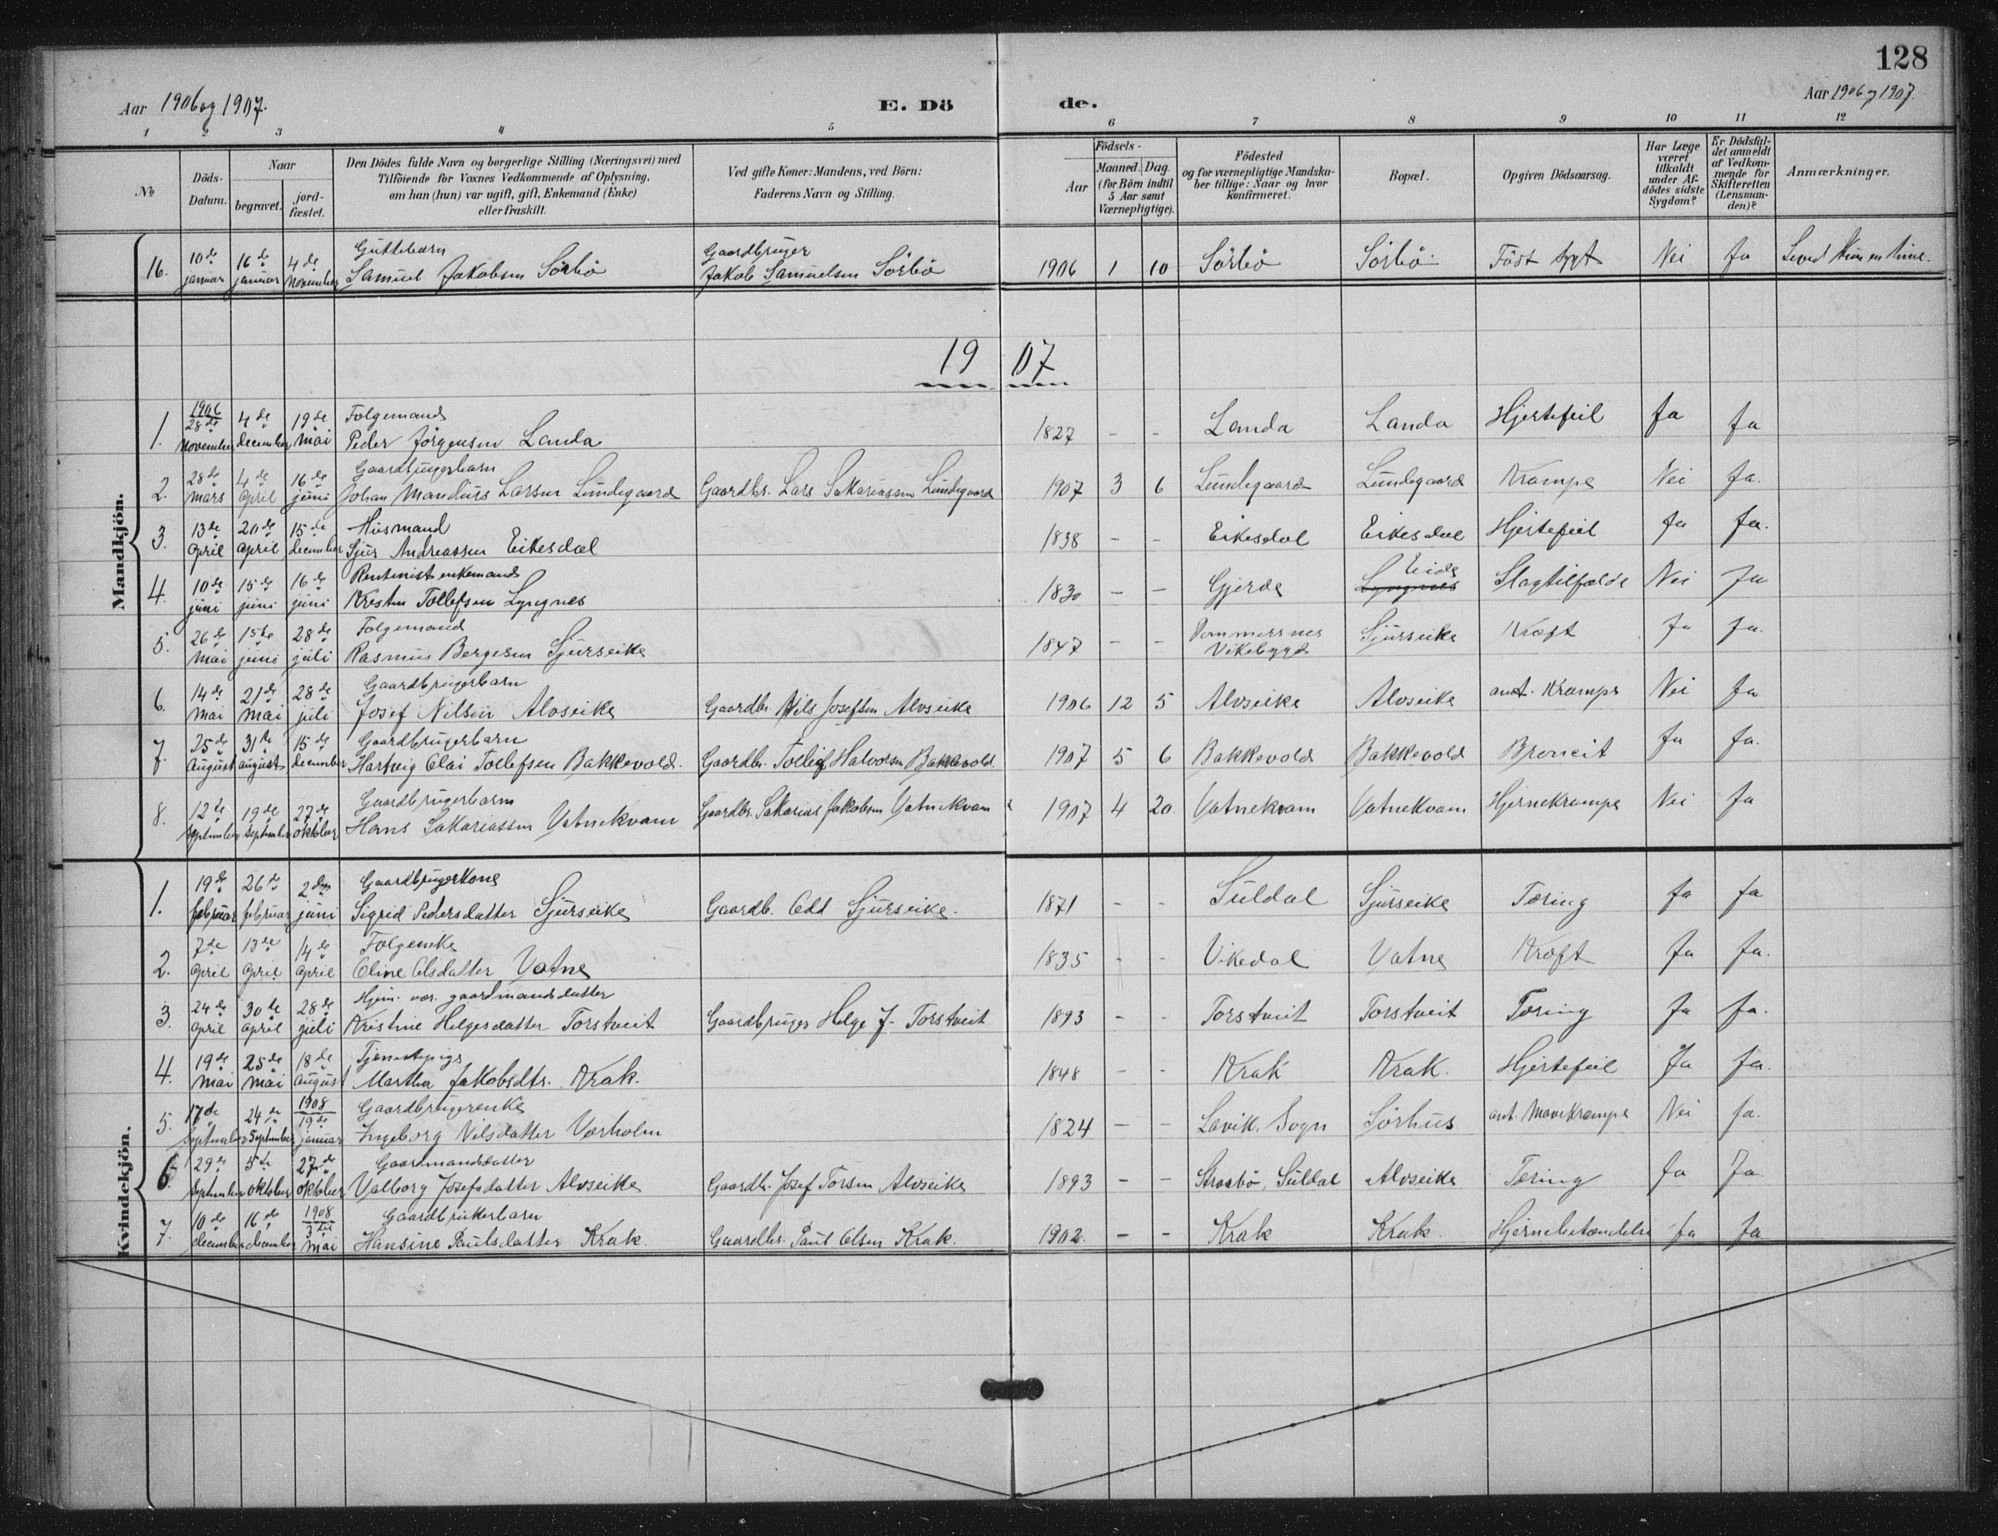 128
Aar 1906 og 1907.
E. Dö de.
Aar 1906 og 1907.
1 2 3 4 5 6 7 8 9 10 11 12
No
Döds-Datum.
Naar
begravet.
jord-fæstet.
Den Dödes fulde Navn og borgerlige Stilling (Næringsvei) med
Tilföiende for Voxnes Vedkommende af Oplysning,
om han (hun) var ugift, gift, Enkemand (Enke)
eller fraskilt.
Ved gifte Koner: Mandens, ved Börn:
Faderens Navn og Stilling.
Födsels-
Aar
Maaned. Dag.
(for Börn indtil
5 Aar samt
Værnepligtige).
Födested
og for værnepligtige Mandska-
ber tillige: Naar og hvor
konfirmeret.
Bopæl.
Opgiven Dödsaarsag.
Har Læge
været
tilkaldt
under Af-
dödes sidste
Sygdom?
Er Dödsfal-
det anmeldt
af Vedkom-
mende for
Skifteretten
(Lensman-
den)?
Anmærkninger.
16. 10de januar 16de januar 4de november Guttebarn Samuel Jakobsen Sörbö Gaardbruger Jakob Samuelsen Sörbö 1906 1 10 Sörbö Sörbö Föst sygt Nei Ja Leved kun en time.
1907
Mandkjön.
1. 1906 28de november 4de december 19de mai Folgemand Peder Jörgensen Landa 1827 - - Landa Landa Hjertefeil Ja Ja
2. 28de mars 4de april 16de juni Gaardbrugerbarn Johan Mandius Larsen Lundegaard Gaardbr. Lars Sakariassen Lundegaard 1907 3 6 Lundegaard Lundegaard Krampe Nei Ja.
3. 13de april 20de april 15de december Husmand Sjur Andreassen Eikesdal 1838 - - Eikesdal Eikesdal Hjertefeil Ja Ja.
4. 10de juni 15de juni 16de juni Rentenist enkemand Kristen Tollefsen Lyngnes 1830 - - Gjerde Lyngnes Eide Slagtilfælde Nei Ja
5. 26de mai 1ste juni 28de juli Folgemand Rasmus Bergesen Sjurseike 1847 - - Vommersnes Vikebygd Sjurseike Kræft Ja Ja.
6. 14de mai 21de mai 28de juli Gaardbrugerbarn Josef Nilsen Alvseike Gaardbr. Nils Josefsen Alvseike 1906 12 5 Alvseike Alvseike ant. Krampe Nei Ja
7. 25de august 31te august 15de december Gaardbrugerbarn Hartvig Olai Tollefsen Bakkevold. Gaardbr. Tollef Halvorsen Bakkevold. 1907 5 6 Bakkevold Bakkevold Broncit Ja Ja.
8. 12te september 19de september 27de oktober Gaardbrugerbarn Hans Sakariassen Vatnekvam Gaardbr. Sakarias Jakobsen Vatnekvam 1907 4 20. Vatnekvam Vatnekvam Hjernekrampe Nei Ja
Kvindekjön.
1. 19de februar 26de februar 2den juni Gaardbrugerkone Sigrid Pedersdatter Sjurseike Gaardb. Odd Sjurseike. 1871 - - Suldal Sjurseike Tæring Ja Ja
2. 7de april 13de april 14de april Folgenke Oline Olsdatter Vatne 1835 - - Vikedal Vatne Kræft Ja Ja.
3. 24de april 30te april 28de juli Hjem. vær. gaardmandsdatter Kristine Helgesdatter Torstveit Gaardbruger Helge J. Torstveit 1893 - - Torstveit Torstveit Tæring Ja Ja.
4. 19de mai 25de mai 18de august Tjenestepige Martha Jakobsdtr. Krak. 1848 - - Krak Krak. Hjertefeil Ja Ja.
5. 17de september 24de september 1908 19de januar Gaardbrugerenke Ingeborg Nilsdatter Værholm 1824 - - Lavik. Sogn Sörhus ant. Mavekrampe Nei Ja.
6 29de september 5te oktober 27de oktober Gaardmandsdatter Valborg Josefsdatter Alvseike Gaardbr. Josef Torsen Alvseike 1893 - - Straabö, Suldal Alvseike Tæring Ja Ja.
7. 10de december 16de december 1908 3die mai Gaardbrukerbarn Hansine Paulsdatter Krak. Gaardbr. Paul Olsen Krak. 1902. - - Krak Krak. Hjernebetændelse Ja Ja.